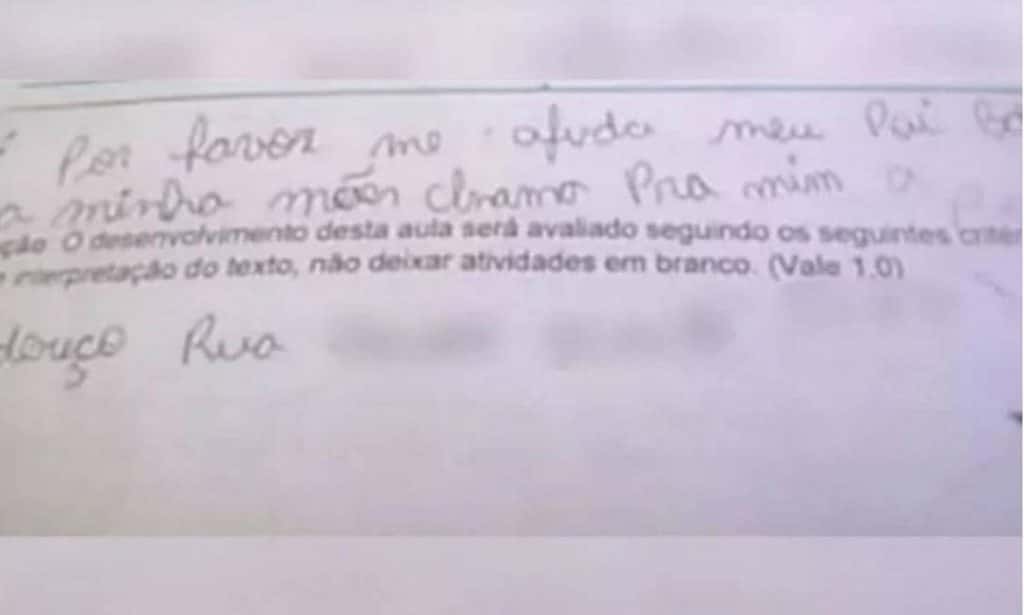 Por favor me afuda meu Pai
a minha mãe chramo Pra mim a
ção O desenvolvimento desta aula será avaliado seguindo os seguintes critér
e interpretação do texto, não deixar atividades em branco. (Vale 1.0)
Rua